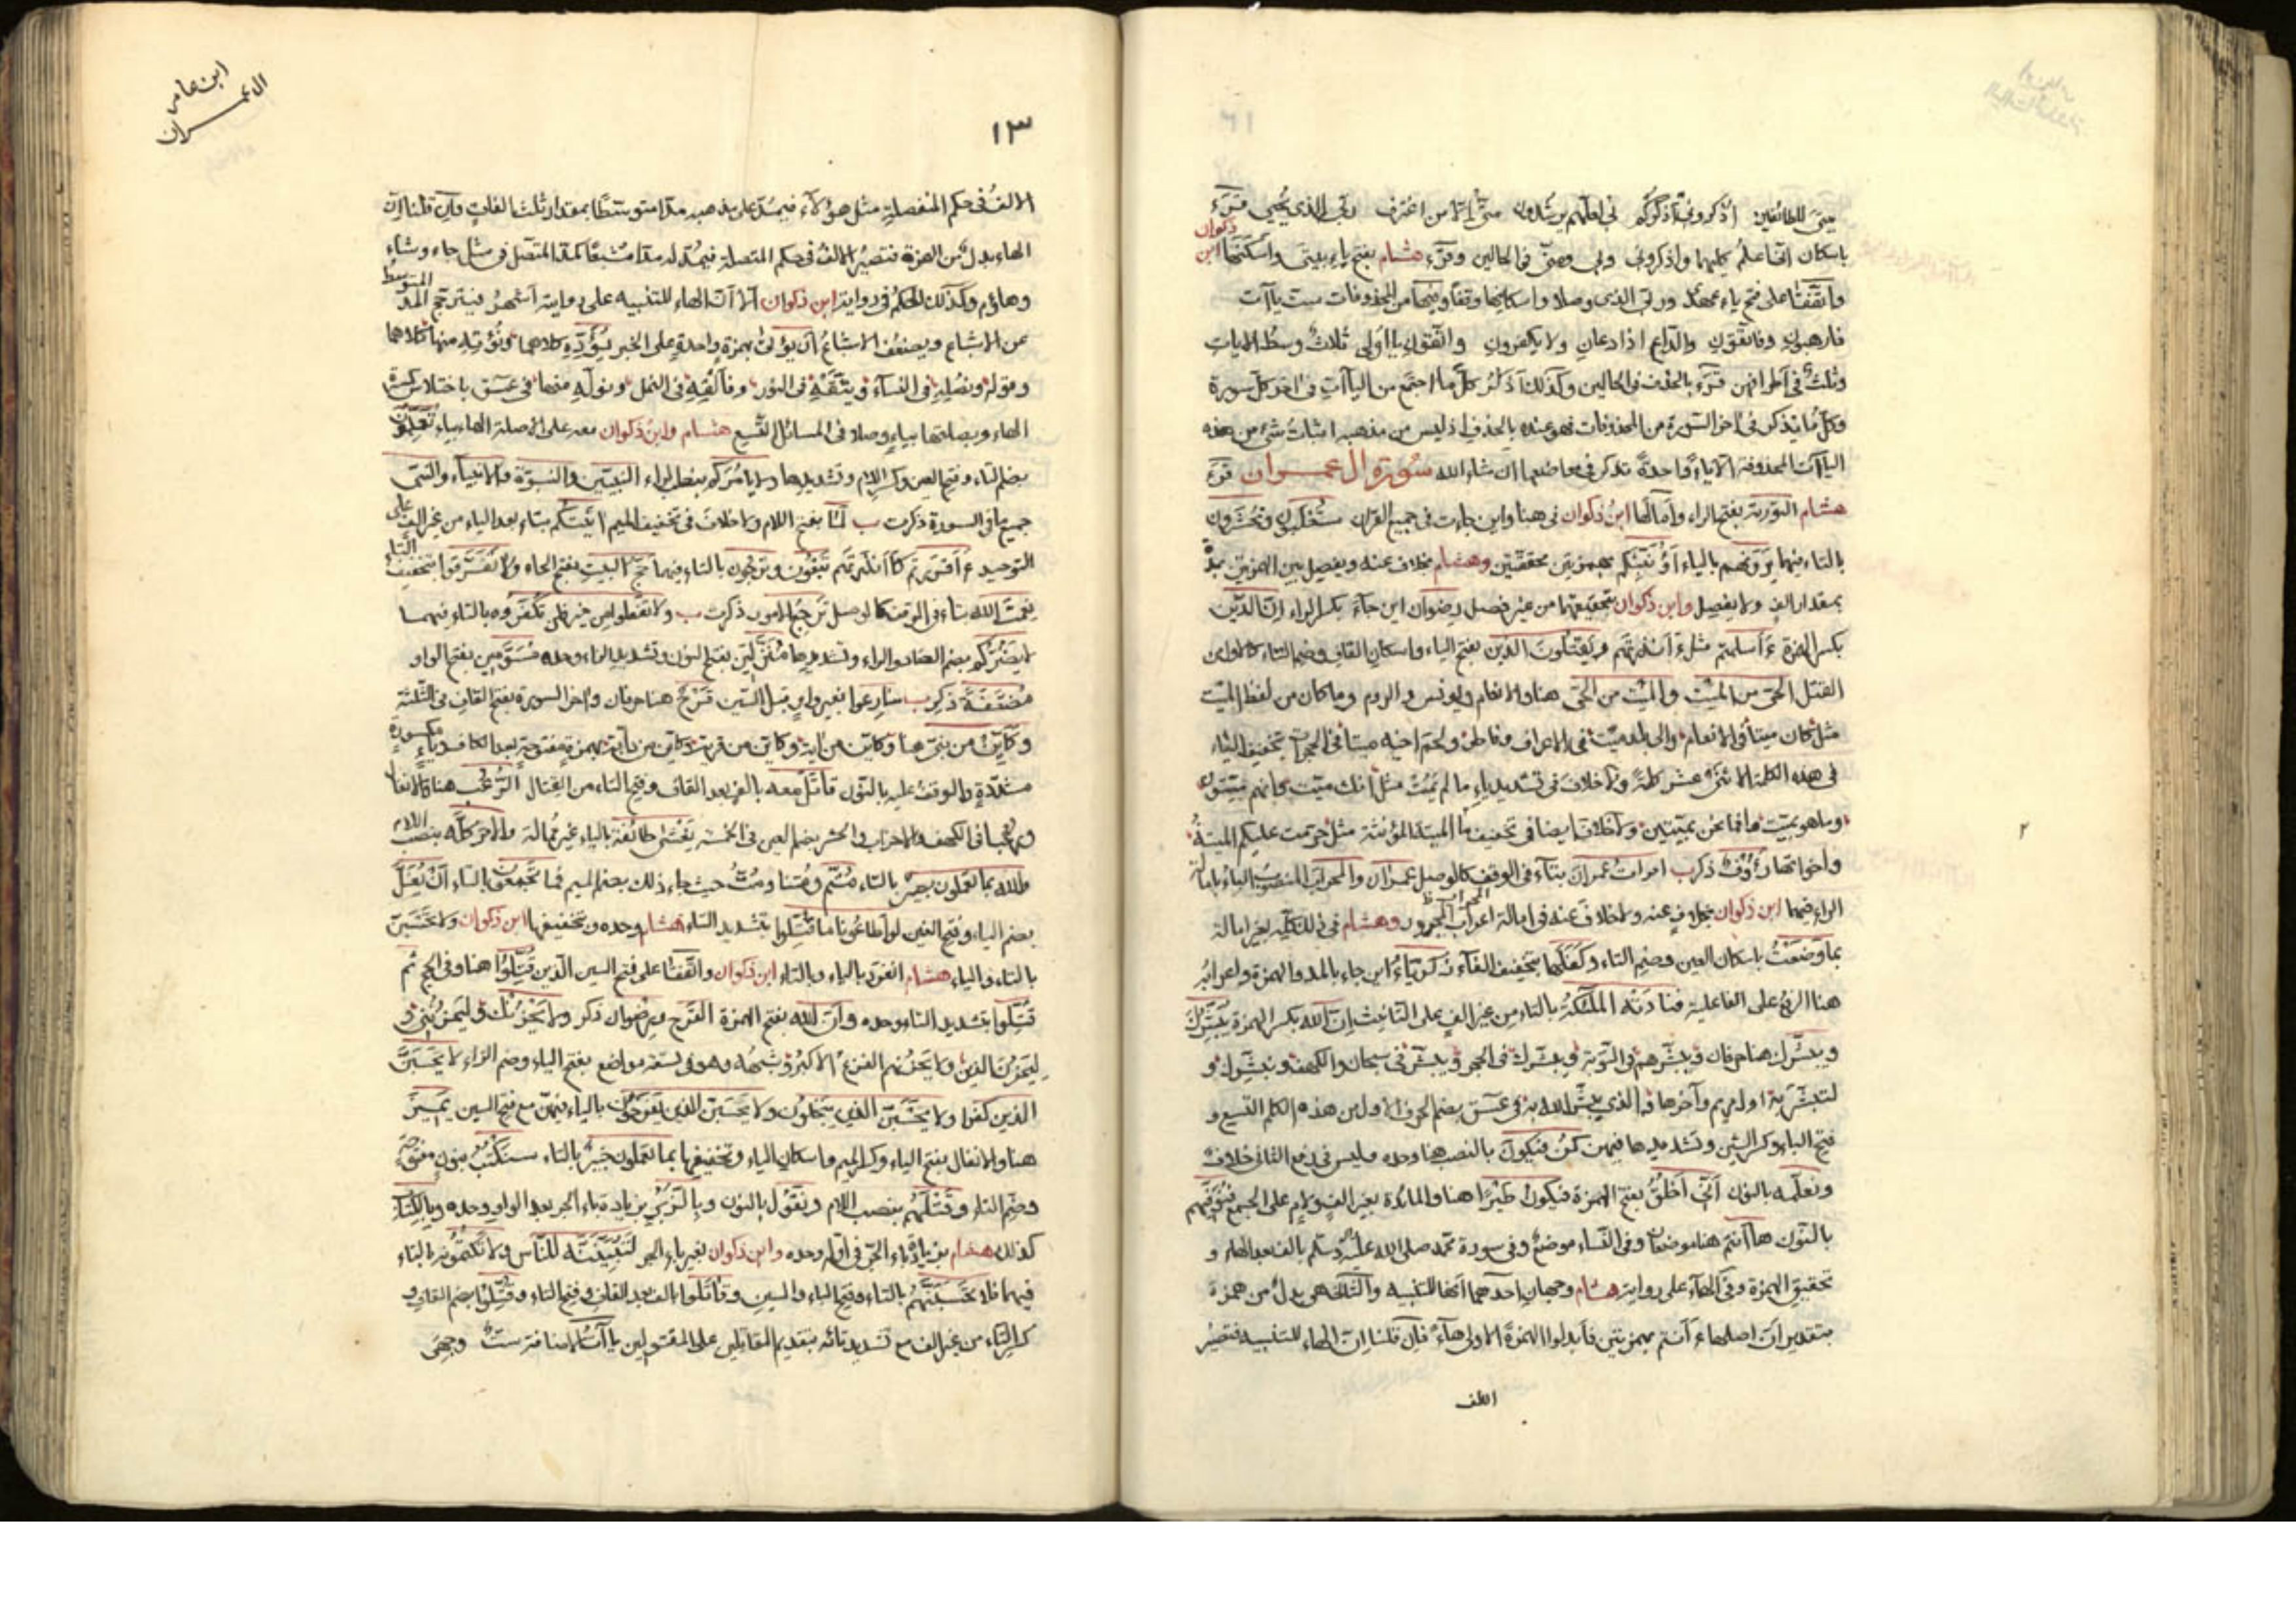 منى للطائفين اذكروني اذكركم لي لعلهم يرشدون منى الا من اغترف ربي الذي يحيي قرء
باسكان انى اعلم كليهما واذكروني ولي ومنى في الحالين وقرء هشام بفتح ياء بيتى واسكنها ابن ذكوان
واتفقا على فتح ياء عهدى وربي الذى وصلا واسكانها وقفا وفيها من المحذوفات ست ياآت
فارهبون وفاتقون والداع اذا دعان ولا تكفرون واتقون يا اولى ثلاث وسط الايات
وثلث في اطرافهن قرء بالحذف في الحالين وكذلك اذكر كل ما اجتمع من الياآت في اخر كل سورة
وكل ما يذكر في اخر السورة من المحذوفات فهو عنده بالحذف اذ ليس من مذهبه اثبات شيء من هذه
الياآت المحذوفة الا ياء واحدة تذكر في مواضعها ان شاء الله سورة آل عمران قرء
هشام التورية بفتح الراء وامالها ابن ذكوان في هنا واين جاءت في جميع القران ستغلبون وتحشرون
بالتاء فيهما يرونهم بالياء اؤنبئكم بهمزتين محققتين وهشام بخلاف عنه ويفصل بين الهمزتين بمدة
بمقدار الف ولا يفصل وابن ذكوان بتحقيقهما من غير فصل رضوان اين جاء بكسر الراء ان الدين
بكسر الهمزة ءاسلمتم مثل ءانذرتهم ويقتلون الذين بفتح الياء واسكان القاف وضم التاء كالاولى من
القتل الحى من الميت والميت من الحى هنا والانعام ويونس والروم وما كان من لفظ الميت
مثل كان ميتا في الانعام والى بلد ميت في الاعراف وفاطر ولحم اخيه ميتا في الحجرات بتخفيف الياء
في هذه الكلمة الاثنى عشر كلمة ولا خلاف في تشديد ياء ما لم يمت مثل انك ميت وانهم ميتون
وما هو بميت وافما نحن بميتين ولا خلاف ايضا في تخفيف ياء الميتة المؤنثة مثل حرمت عليكم الميتة
واخواتها رؤف ذكر ب امرات عمران بتاء في الوقف كالوصل عمران والمحراب المنصوب الباء بامالة
الراء فيهما ابن ذكوان بخلاف عنه ولا خلاف عنه في امالة اعراب المحراب المجرور وهشام في ذلك كله بغير امالة
بما وضعت باسكان العين وضم التاء وكفلها بتخفيف الفاء زكرياء اين جاء بالمد والهمزة واعرابه
هنا الرفع على الفاعلية فنادته الملئكة بالتاء من غير الف على التانيث ان الله بكسر الهمزة يبشرك
ويبشرك هنا حرفان ويبشرهم في التوبة ويبشرك في الحجر ويبشر في سبحان والكهف ونبشرك و
لتبشر به اول مريم وآخرها والذي يبشر الله به في عسق بضم الحرف الاول من هذه الكلم التسع و
فتح الباء وكسر الشين وتشديدها فيهن كن فيكون بالنصب هنا وحده وليس في رفع الثانى خلاف
ونعلمه بالنون انى اخلق بفتح الهمزة فيكون طيرا هنا والمائدة بغير الف ولام على الجمع فنوفيهم
بالنون هاانتم هنا موضعان وفي النساء موضع وفي سورة محمد صلى الله عليه وسلم بالف بعد الهاء و
تحقيق الهمزة وفي الهاء على رواية هشام وجهان احدهما انها للتنبيه والثاني هي بدل من همزة
بتقدير ان اصلها ءانتم بهمزتين فابدلوا الهمزة الاولى هاء فان قلنا ان الهاء للتنبيه فتصير
الالف
ابن عامر
ال عمران
١٣
الالف في حكم المنفصلة مثل هؤلاء فيمد على مذهبه مدا متوسطا بمقدار ثلث الفات وان قلنا ان
الهاء بدل من الهمزة فتصير الالف في حكم المتصلة فيمد له مدا مشبعا كمد المتصل في مثل جاء وشاء
وهاؤم وكذلك الحكم في رواية ابن ذكوان الا ان الهاء للتنبيه على رواية اشهر فيترجح المد المتوسط
عن الاشباع ويضعف الاشباع ان يؤتى بهمزة واحدة على الخبر يؤده كلاهما ونؤته منها كلاهما
ونوله ونصله في النساء ويتقه في النور وفالقه في النمل ونؤته منها في عسق باختلاس كسرة
الهاء وبصلتها بياء وصلا في المسائل التسع هشام وابن ذكوان معه على الاصلة الهاء بياء تعلمون
بضم التاء وفتح العين وكسر اللام وتشديدها ولا يامركم بنصب الراء النبيين والنبوة والانبياء والنبى
جميع ما في السورة ذكرت ب لما بفتح اللام ولا خلاف في تخفيف الميم اتيتكم بتاء بعد الياء من غير الف على
التوحيد ءاقررتم كاانذرتهم تبغون وترجعون بالتاء فيهما حج البيت بفتح الحاء ولا تفرقوا بتخفيف التاء
نعمت الله بتاء في الوقف كالوصل ترجع الامور ذكرت ب وما تفعلوا من خير فلن تكفروه بالتاء فيهما
لا يضركم بضم الضاد والراء وتشديدها منزلين بفتح النون وتشديد الزاء وحده مسومين بفتح الواو
مضعفة ذكر ب سارعوا بغير واو قبل السين قرح هنا حرفان واخر السورة بفتح القاف في الثلثة
وكاين من نبى هنا وكاين من اية وكاين من قرية وكاين من دابة بهمزة مفتوحة بعد الكاف وياء مكسورة
مشددة والوقف عليه بالنون قاتل معه بالف بعد القاف وفتح التاء من القتال الرعب هنا والانفال
ورعبا في الكهف والاحزاب والحشر بضم العين في الخمسة يغشى طائفة بالياء غير ممالة والامر كله بنصب اللام
والله بما تعملون بصير بالتاء متم ومتنا ومت حيث جاء ذلك بضم الميم مما تجمعون بالتاء ان يغل
بضم الياء وفتح الغين لو اطاعونا ما قتلوا بتشديد التاء هشام وحده وبتخفيفها ابن ذكوان ولا تحسبن
بالتاء والياء هشام انفرد بالياء وبالتاء ابن ذكوان واتفقا على فتح السين الذين قتلوا هنا وفي الحج ثم
قتلوا بتشديد التاء وحده وان الله بفتح الهمزة القرح ورضوان ذكر ولا يحزنك وليحزننى و
ليحزن الذين ولا يحزنهم الفزع الاكبر وشبهه وهو في تسعة مواضع بفتح الياء وضم الزاء لا يحسبن
الذين كفروا ولا يحسبن الذين يبخلون ولا يحسبن الذين يفرحون بالياء فيهن مع فتح السين يميز
هنا والانفال بفتح الياء وكسر الميم واسكان الياء وتخفيفها بما تعملون خبير بالتاء سنكتب بنون مفتوحة
وضم التاء وقتلهم بنصب اللام ونقول بالنون وبالزبر بزيادة باء الجر بعد الواو وحده وبالكتاب
كذلك هشام بزيادة باء الجر في اوله وحده وابن ذكوان بغير باء الجر لتبيننه للناس ولا تكتمونه بالتاء
فيهما فلا تحسبنهم بالتاء وفتح الباء والسين وقاتلوا بالف بعد القاف وفتح التاء وقتلوا بضم القاف و
كسر التاء من غير الف مع تشديد تائه بتقديم المقاتلين على المقتولين ياآت الاضافة ست وجهى